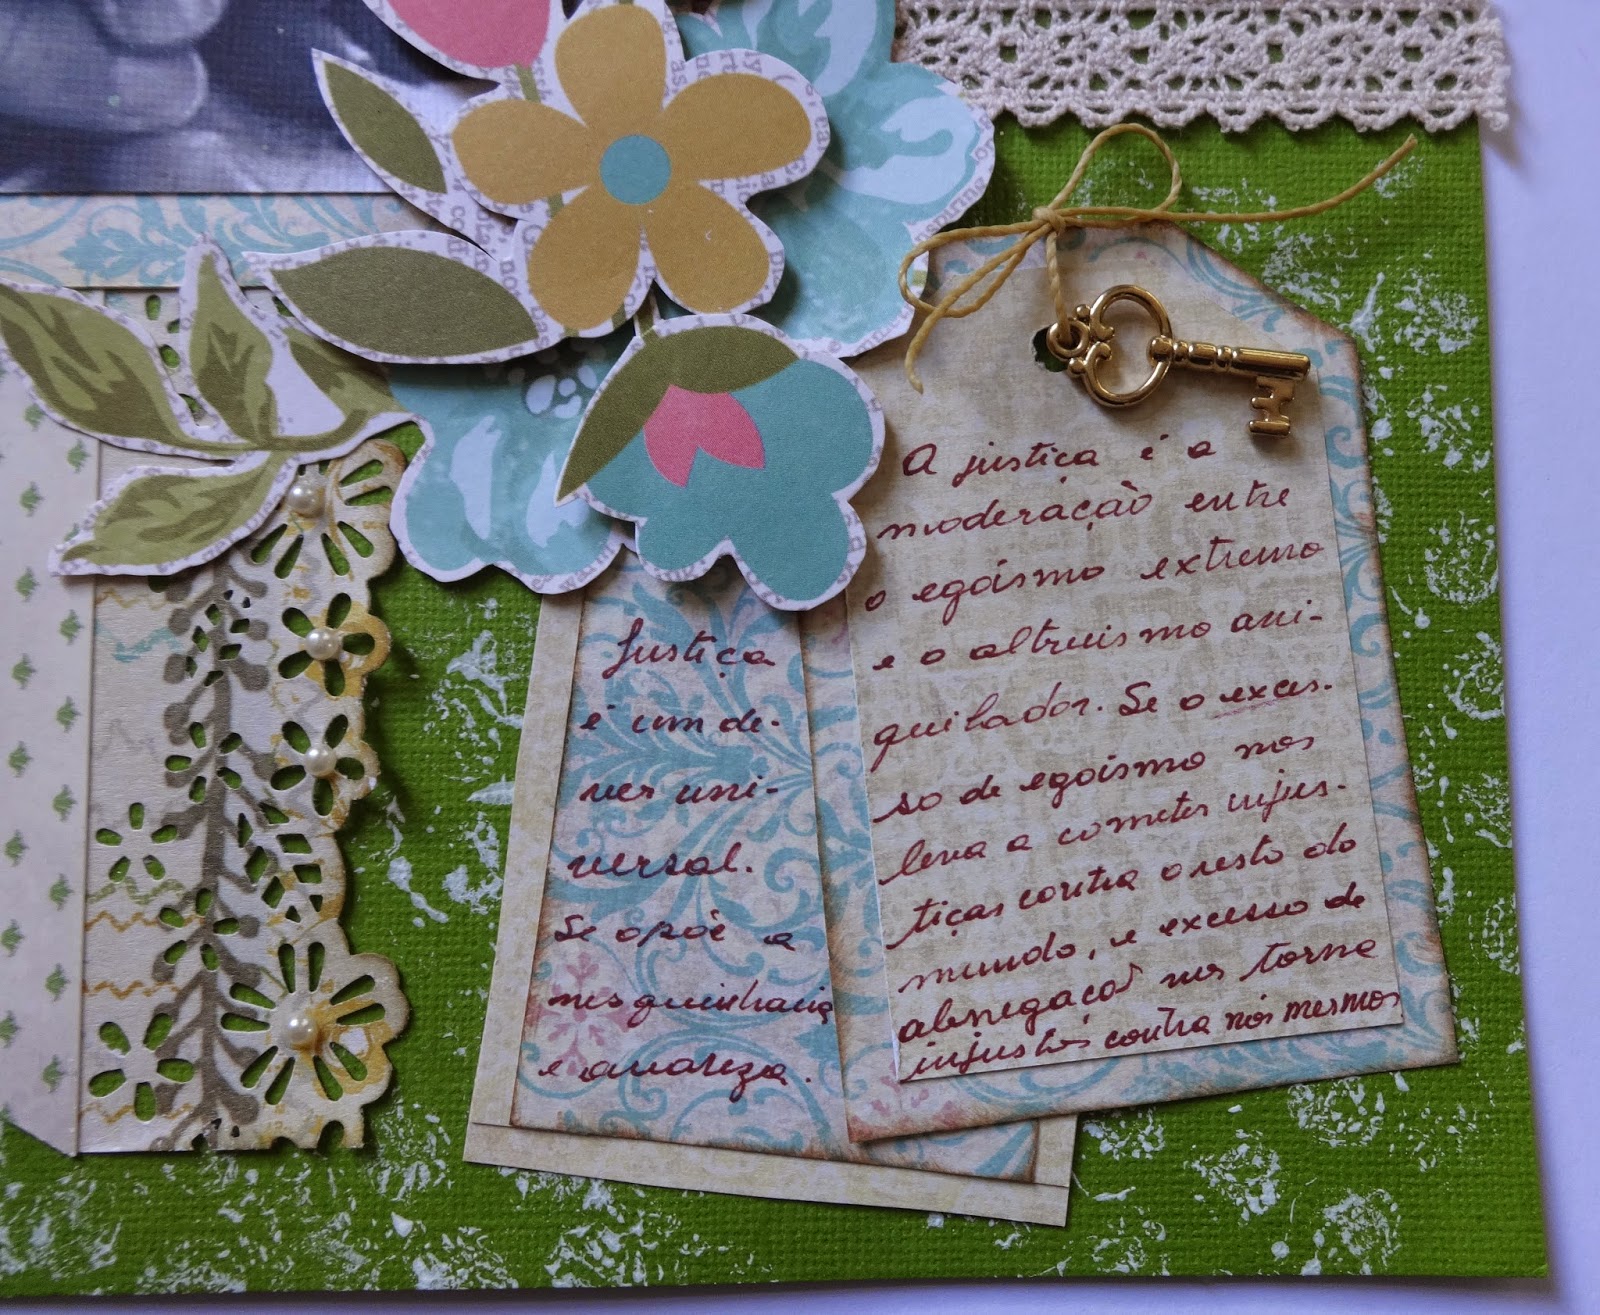 Justiça
é um de-
ver uni-
versal.
Se opõe a
mesquinharia
e avareza.
A justiça é a
moderação entre
o egoísmo extremo
e o altruísmo ani-
quilador. Se o exces-
so de egoísmo nos
leva a cometer injus-
tiças contra o resto do
mundo, e excesso de
abnegação nos torna
injustos contra nós mesmos